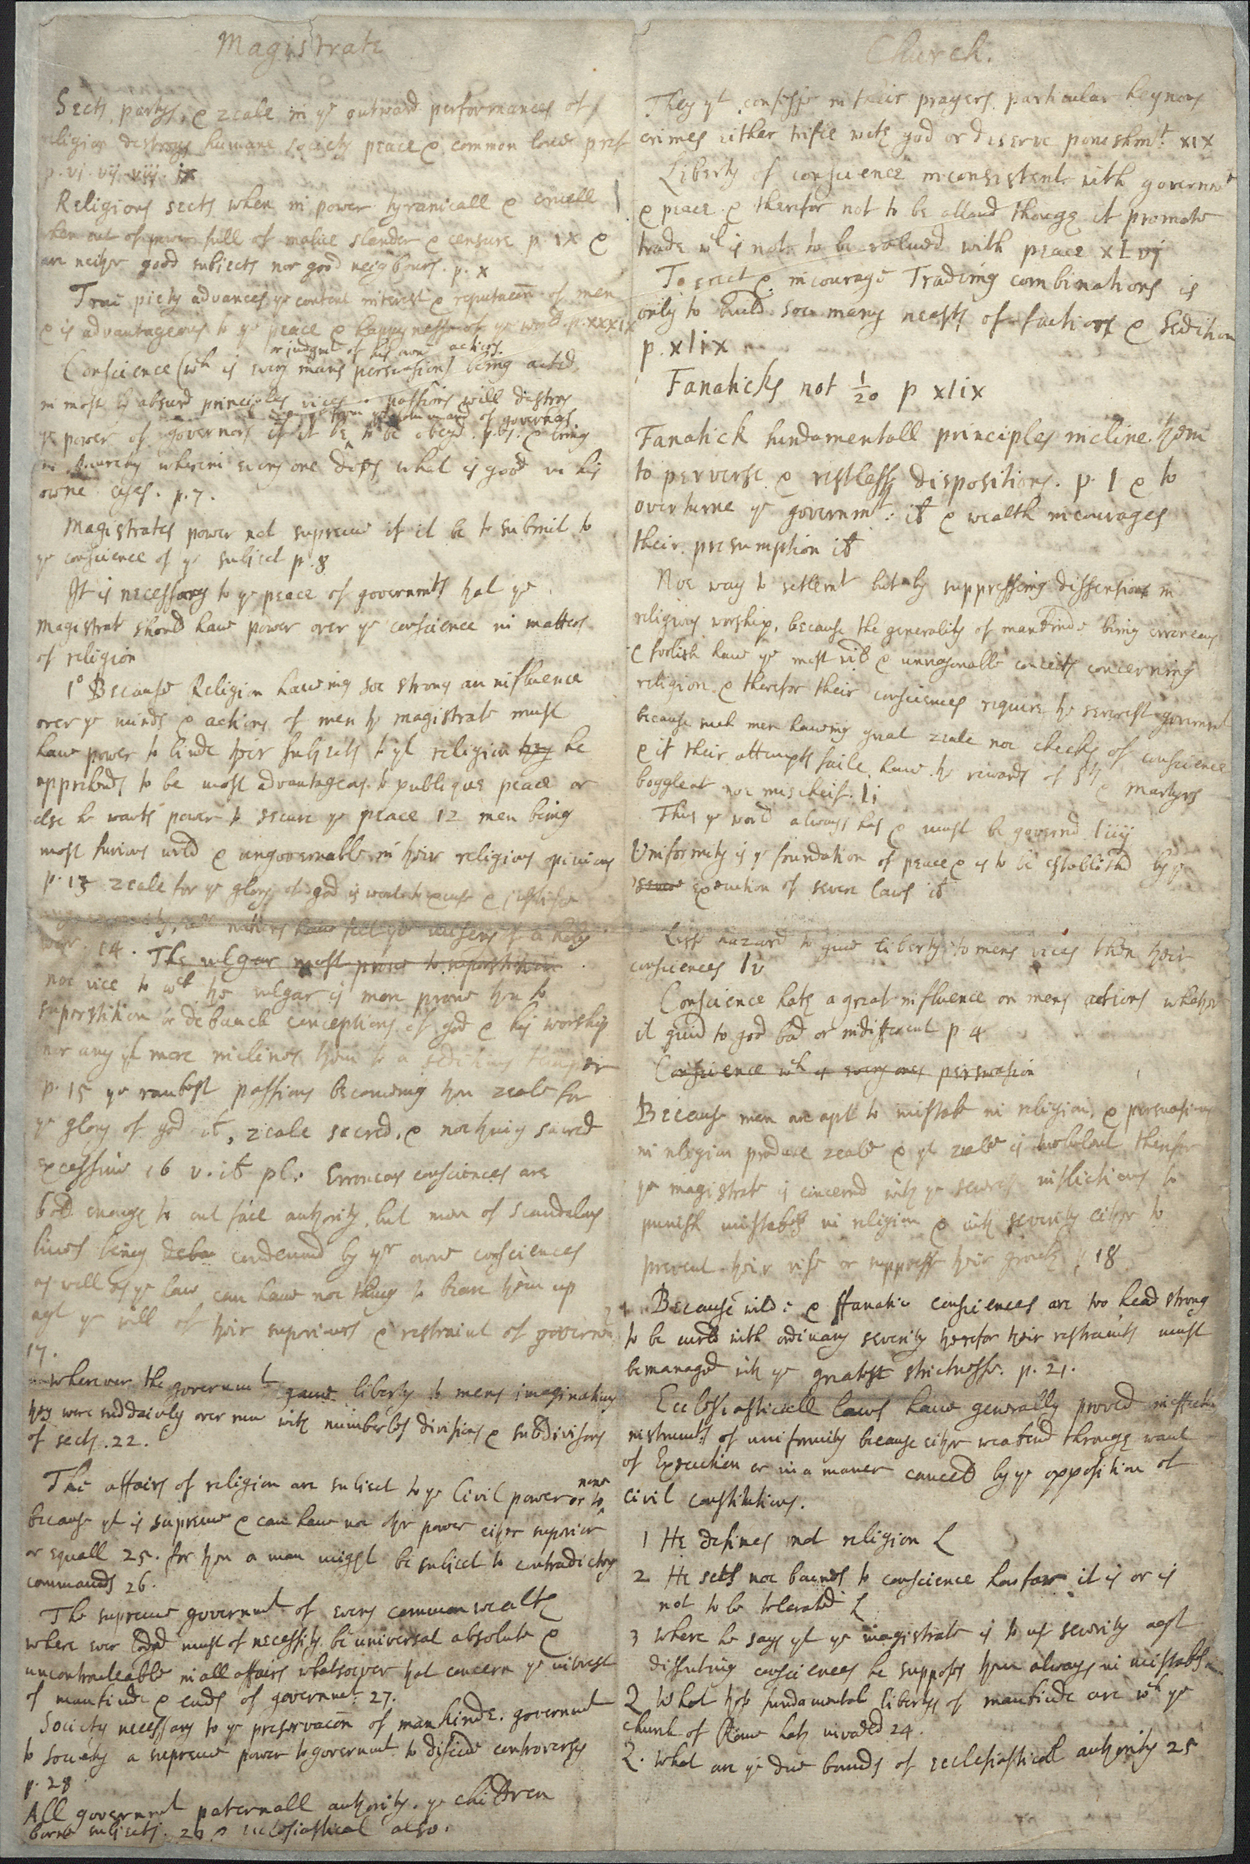 Magistrate
Sects partys, & zeale in ye outward performances of
religion destroys humane society peace & common love pref
p. vi vij viij ix
Religious sects when in power tyranicall & cruell
when out of power full of malice slander & censure p. ix &
are neithr good subjects nor good neigbours. p. x
True piety advances ye content interest & reputacon of men
& is advantageous to ye peace & happynesse of ye world p. xxxix
or judgmt of his own actions
Conscience (wch is every mans perswasion) being acted
in most by absurd principles vices & passions will destroy
ye power of governors if it be to be obeyd. p. 6. & bring
in Anarchy wherein every one does what is good in his
owne eyes. p. 7.
Magistrates power not supreme if it be to submit to
ye conscience of ye subject p. 8
It is necessary to ye peace of governmts that ye
magistrat should have power over ye conscience in matters
of religion
1o Because Religion haveing soe strong an influence
over ye minds & actions of men the magistrate must
have power to binde their subjects to yt religion they he
apprehends to be most advantageous to publique peace or
else he wants power to secure ye peace 12 men being
most furious wild & ungovernable in their religious opinions
p. 13 zeale for ye glory of god is wont to excuse &
war. 14. The vulgar most prone to superstition
noe vice to wch the vulgar is more prone then to
superstition or debauch conceptions of god & his worship
nor any yt more inclines them to a
p. 15 ye rankest passions becomeing then zeale for
ye glory of god it, zeale sacred, & nothing sacred
excessive 16 v. it pl: Erroneous consciences are
bold enough to out face authority, but men of scandalous
lives being debau condemned by yr owne consciences
as well as ye law can have noe thing to beare them up
agt ye will of their superiours & restraint of governmt
17.
Wherever the governmt gave liberty to mens imaginations
they were suddainly over run with numberles divisions & subdivisions
of sects. 22.
The affairs of religion are subject to ye Civil power or to none
because yt is supreme & can have noe othr power eithr superior
or equall 25. for then a man might be subject to contradictory
commands 26.
The supreme governmt of every commonwealth
where ever lodgd must of necessity be universal absolute &
uncontrouleable in all affairs whatsoever that concern ye interest
of mankinde & ends of governmt. 27.
Society necessary to ye preservacon of mankinde. governmt
to society a supreme power to governmt to decide controversys
p. 28
All governmt paternall authority. ye children
borne subjects. 29 & ecclesiastical also.
Church.
They yt confesse in their prayers particular heynous
crimes either trifle with god or deserve punishmt. xix
Liberty of conscience inconsistent with governmt
& peace & therefor not to be allowd though it promote
trade wch is not to be valued with peace xlvij
To erect & incourage Trading combinations is
only to build soe many neasts of factions & Sedition
p. xlix
Fanaticks not 1/20 p xlix
Fanatick fundamentall principles incline them
to perverse & restless dispositions. p. l & to
overturne ye governmt: it & wealth incourages
their presumption it
Noe way to setlemt but by suppressing dissentions in
religious worship, because the generality of mankinde being erroneous
& foolish have ye most wild & unreasonable conceits concerning
religion & therefor their consciences require the severest governmt
because such men haveing great zeale noe checks of conscience
& if their attempts faile have the rewards of & martyrs
boggle at noe mischeif. li
Thus ye world always has & must be governd liiij
Uniformity is ye foundation of peace & is to be established by ye
execution of severe laws it
Lesse hazard to give liberty to mens vices then their
consciences lv
Conscience hath a great influence on mens actions whatever
it guid to good bad or indifferent p 4
Conscience wch is every ones perswasion
Because men are apt to mistake in religion, & perswasions
in religion produce zeale & yt zeale is turbulent therefor
ye magistrate is concernd with ye severest inflictions to
punish mistakes in religion & with severity eithr to
prevent their rise or suppresse their growth p. 18
Because wilde & fanatic consciences are too head strong
to be curbd with ordinary severity therefor their restraints must
be managed with ye greatest strictnesse. p. 21.
Ecclesiasticall laws have generally proved ineffectuall
restraints of uniformity because eithr weakend through want
of Execution or in a maner canceld by ye opposition of
civil constitutions.
1 He defines not religion L
2 He sets noe bounds to conscience how far it is or is
not to be tolerated L
3 Where he says yt ye magistrate is to use severity agst
dissenting consciences he supposes them always in mistakes
Q What thos fundamental libertys of mankinde are wch ye
church of Rome hath invaded 24.
Q. What are ye due bounds of ecclesiasticall authority 25